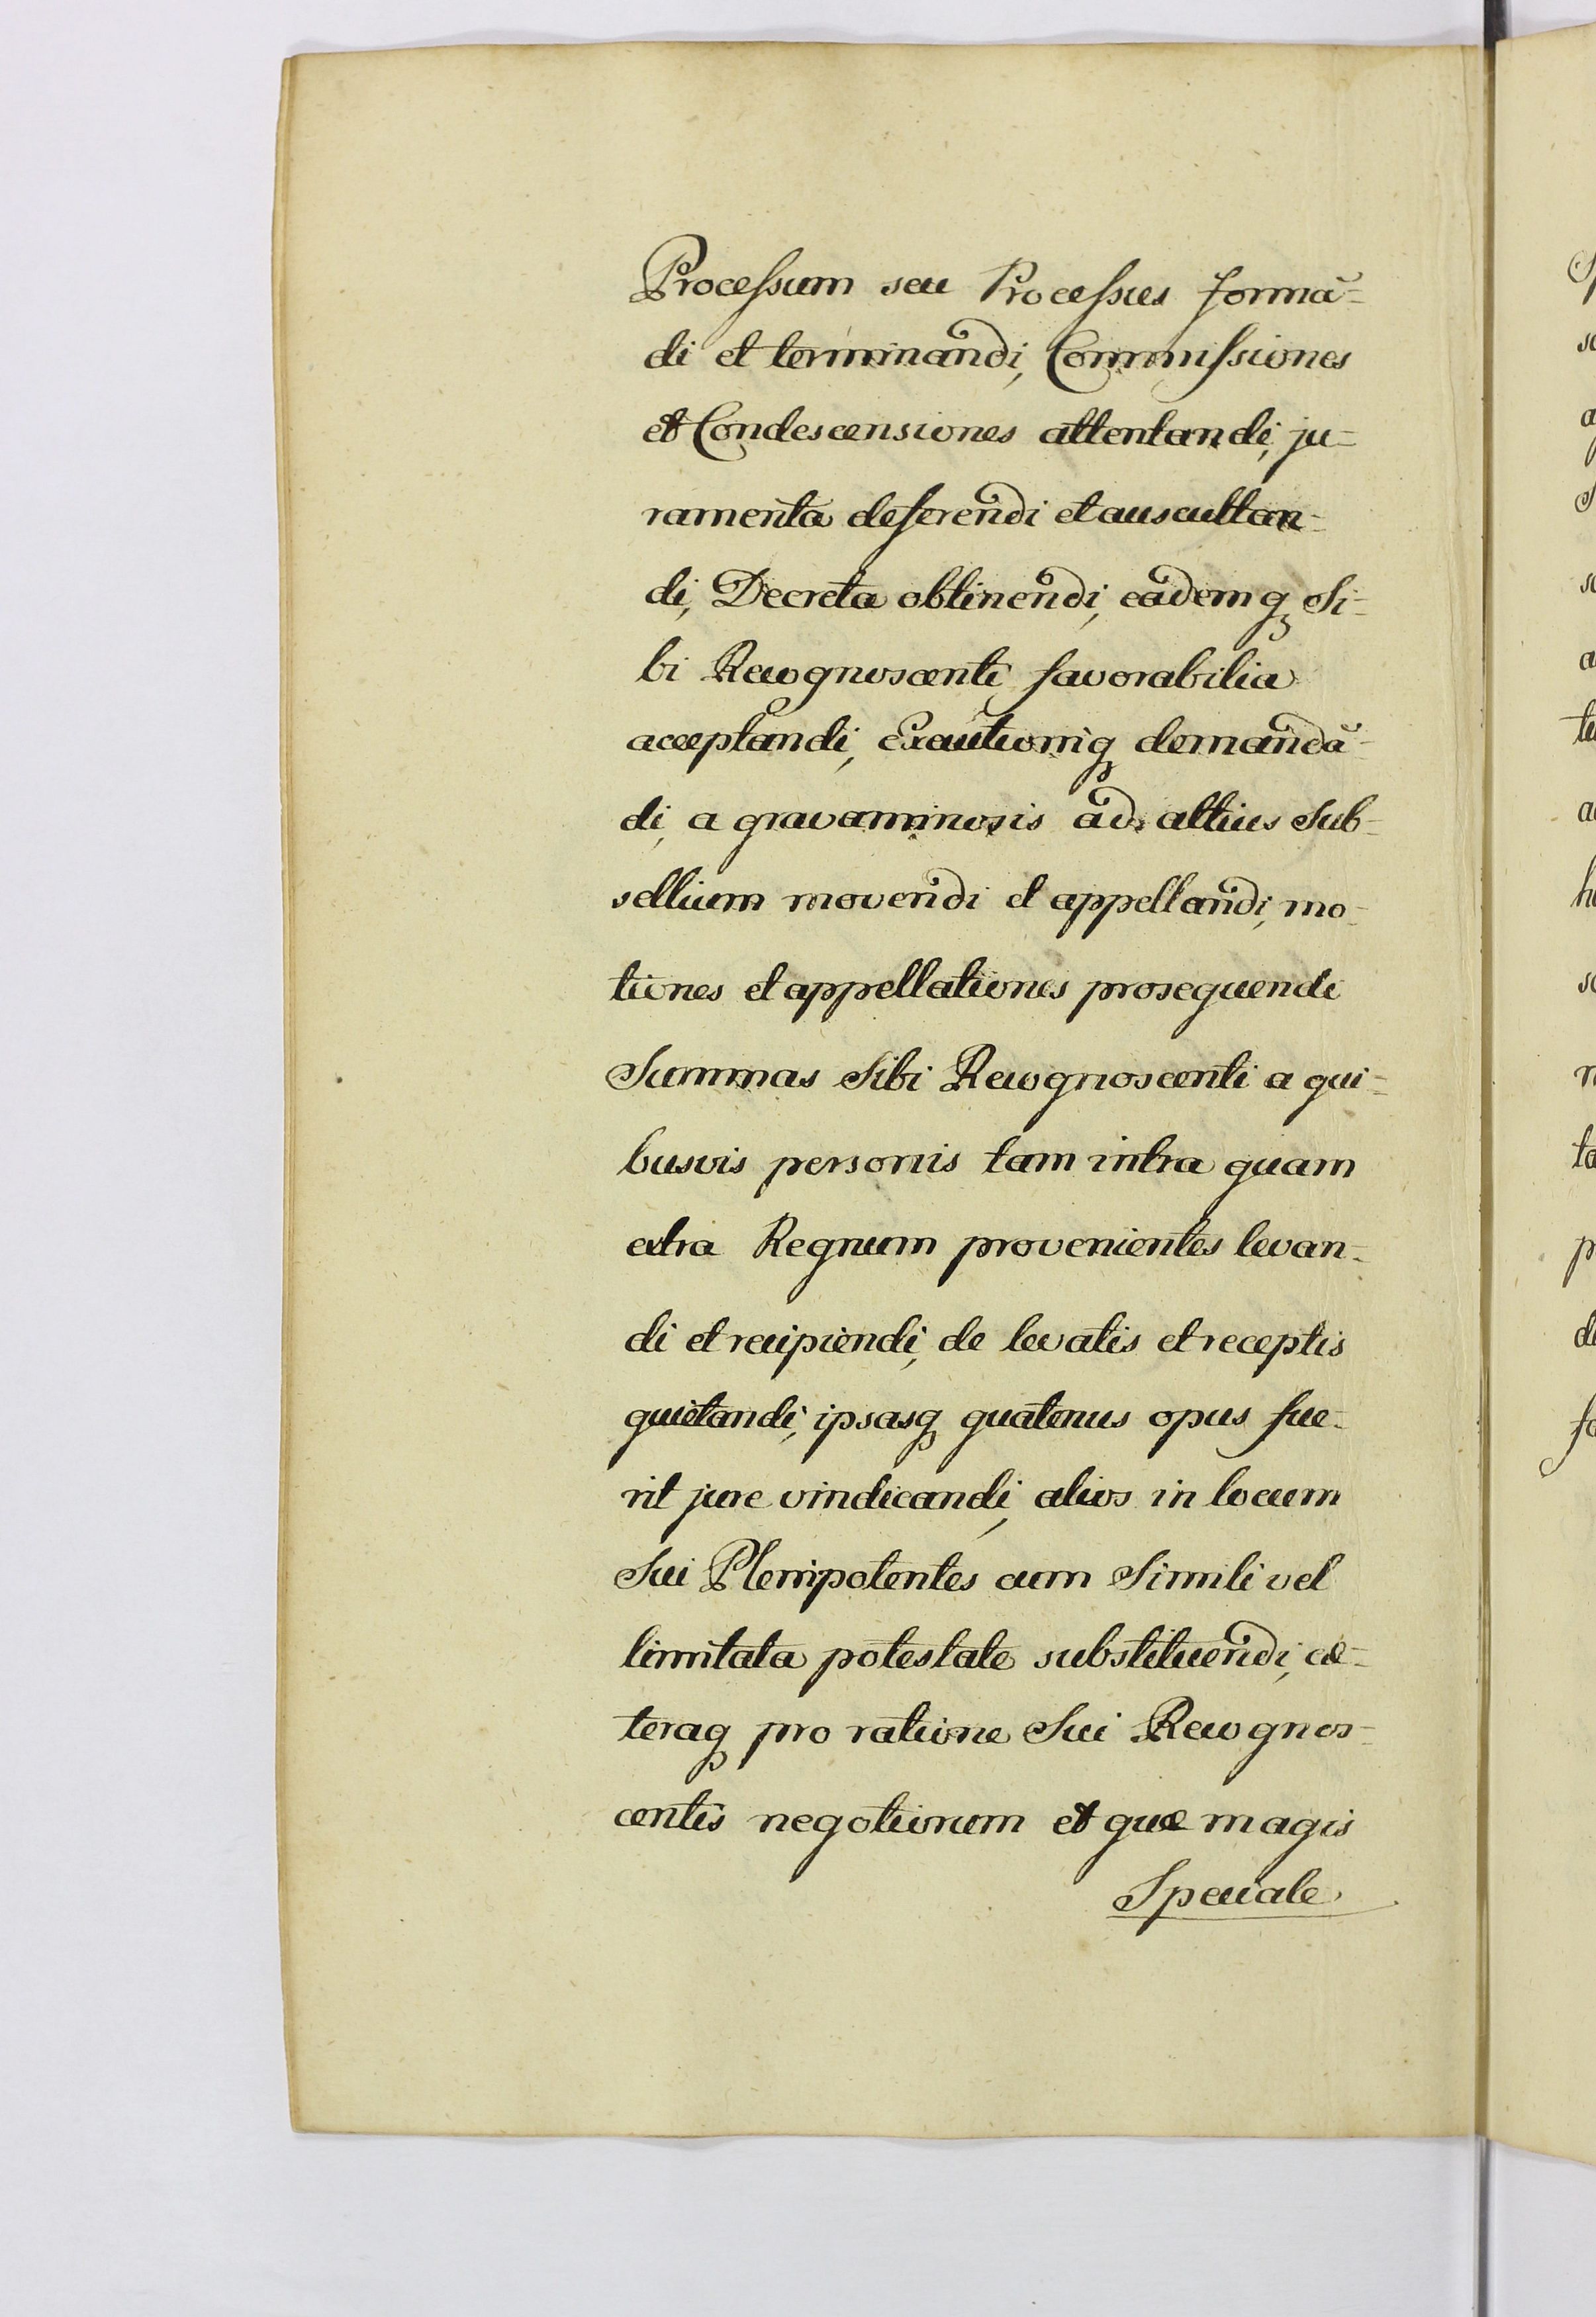 Processum seu Processus formã=
di et terminandi, Commissiones
et Condescensiones attentandi, ju=
ramenta deferendi et auscultan=
di, Decreta obtinendi, eademq Si=
bi Recognoscenti favorabilia
acceptandi, Executioniq demandã=
di, a gravaminosis ad altius Sub=
sellium movendi et appellandi, mo=
tiones et appellationes prosequendi
Summas Sibi Recognoscenti a qui=
busvis personis tam intra quam
extra Regnum provenientes levan=
di et recipiendi, de levatis et receptis
quietandi, ipsasq quatenus opus fue=
rit jure vindicandi, alios in locum
Sui Plenipotentes cum Simili vel
limitata potestate substituendi, cæ=
teraq pro ratione Sui Recognos=
centis negotiorum et quæ magis
Speciale